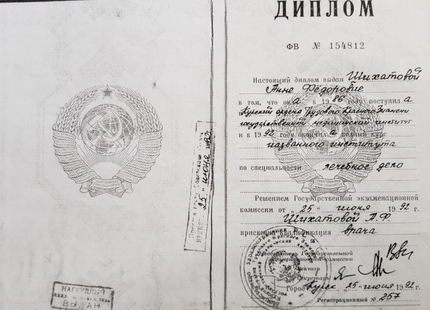 ДИПЛОМ
ФВ № 154812
Настоящий диплом выдан Шихатовой
Анне Фёдоровне
в том, что он а в 1986 году поступил а
в Курский ордена Трудового Красного Знамени
государственный медицинский институт
и в 1992 окончил а полный курс
названного института
по специальности лечебное дело
Решением Государственной экзаменационной
комиссии от 25 июня 1992 г.
Шихатовой А.Ф.
присвоена квалификация врача
Город Курск, 25 июня 1992 г.
Регистрационный № 257
25 июня
НАГРУДНЫЙ
ВЫДАН